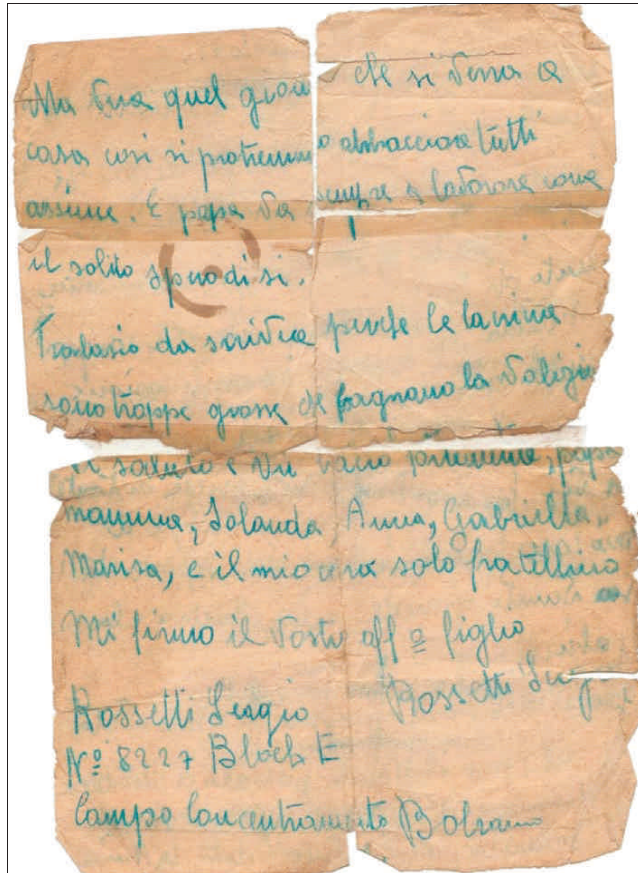 Ma sua quel giorn che si verra a
casa cosi si potremmo abbracciare tutti
assieme. E papa va sempre a lavorare come
il solito spero di si.
Tralascio da scrivere perche le lacrime
sono troppe grosse che bagnano la valigia
il saluto e un bacio papa
mamma, Iolanda, Anna, Gabriella,
Marisa, e il mio caro solo fratellino
Mi firmo il vostro aff º figlio
Rossetti Sergio Rossetti Serg
Nº 8227 Block E
Campo Concentramento Bolzano